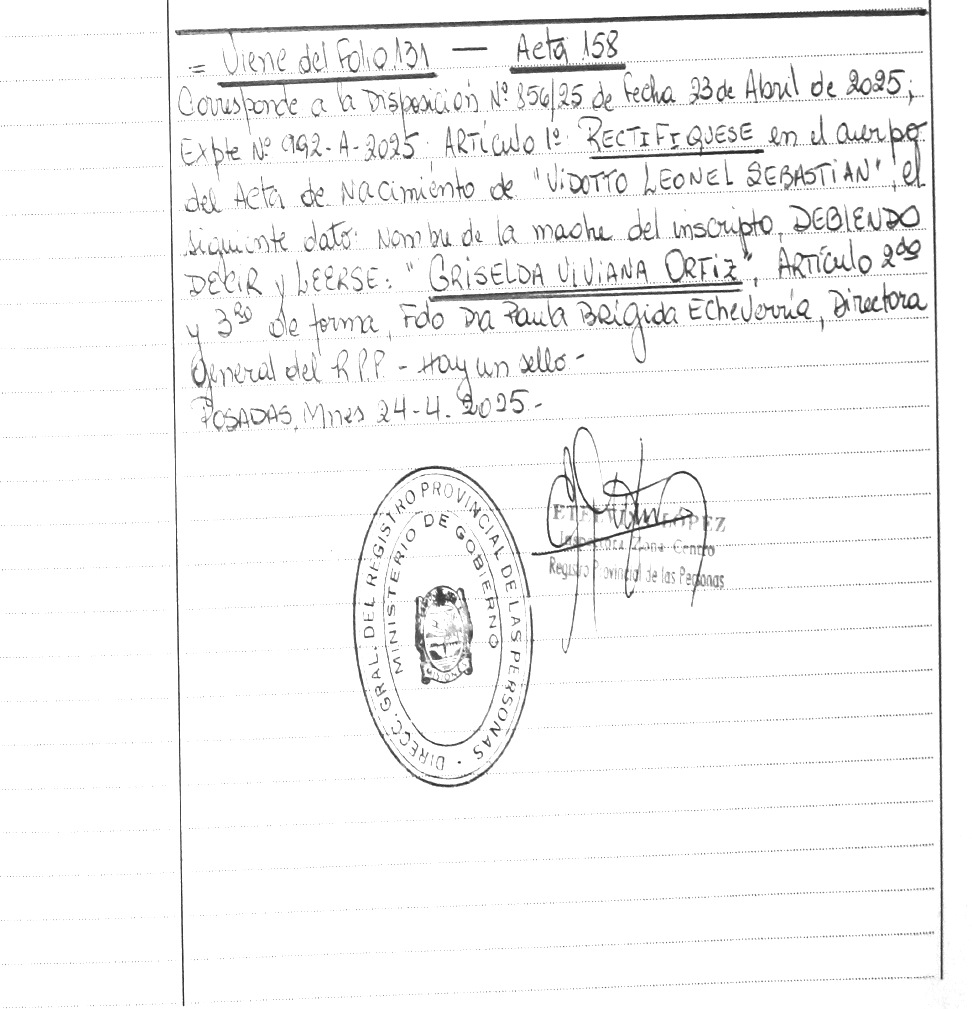 = Viene del Folio 131 — Acta 158
Corresponde a la Disposición Nº 856/25 de fecha 23 de Abril de 2025;
Expte Nº 992-A-2025. ARTículo 1º: RECTIFIQUESE en el cuerpo
del Acta de Nacimiento de "VIDOTTO LEONEL SEBASTIAN", el
siguiente dato: Nombre de la madre del inscripto, DEBIENDO
DECIR y LEERSE: "GRISELDA VIVIANA ORTIZ", ARTÍCULO 2do
y 3ro de forma, Fdo Dra Paula Brigida Echeverría, Directora
General del R.P.P - Hay un sello -
POSADAS, Mnes 24-4.2025.-
DIRECC. GRAL. DEL REGISTRO PROVINCIAL DE LAS PERSONAS
MINISTERIO DE GOBIERNO
LOPEZ
Zona Centro
Registro Provincial de las Personas